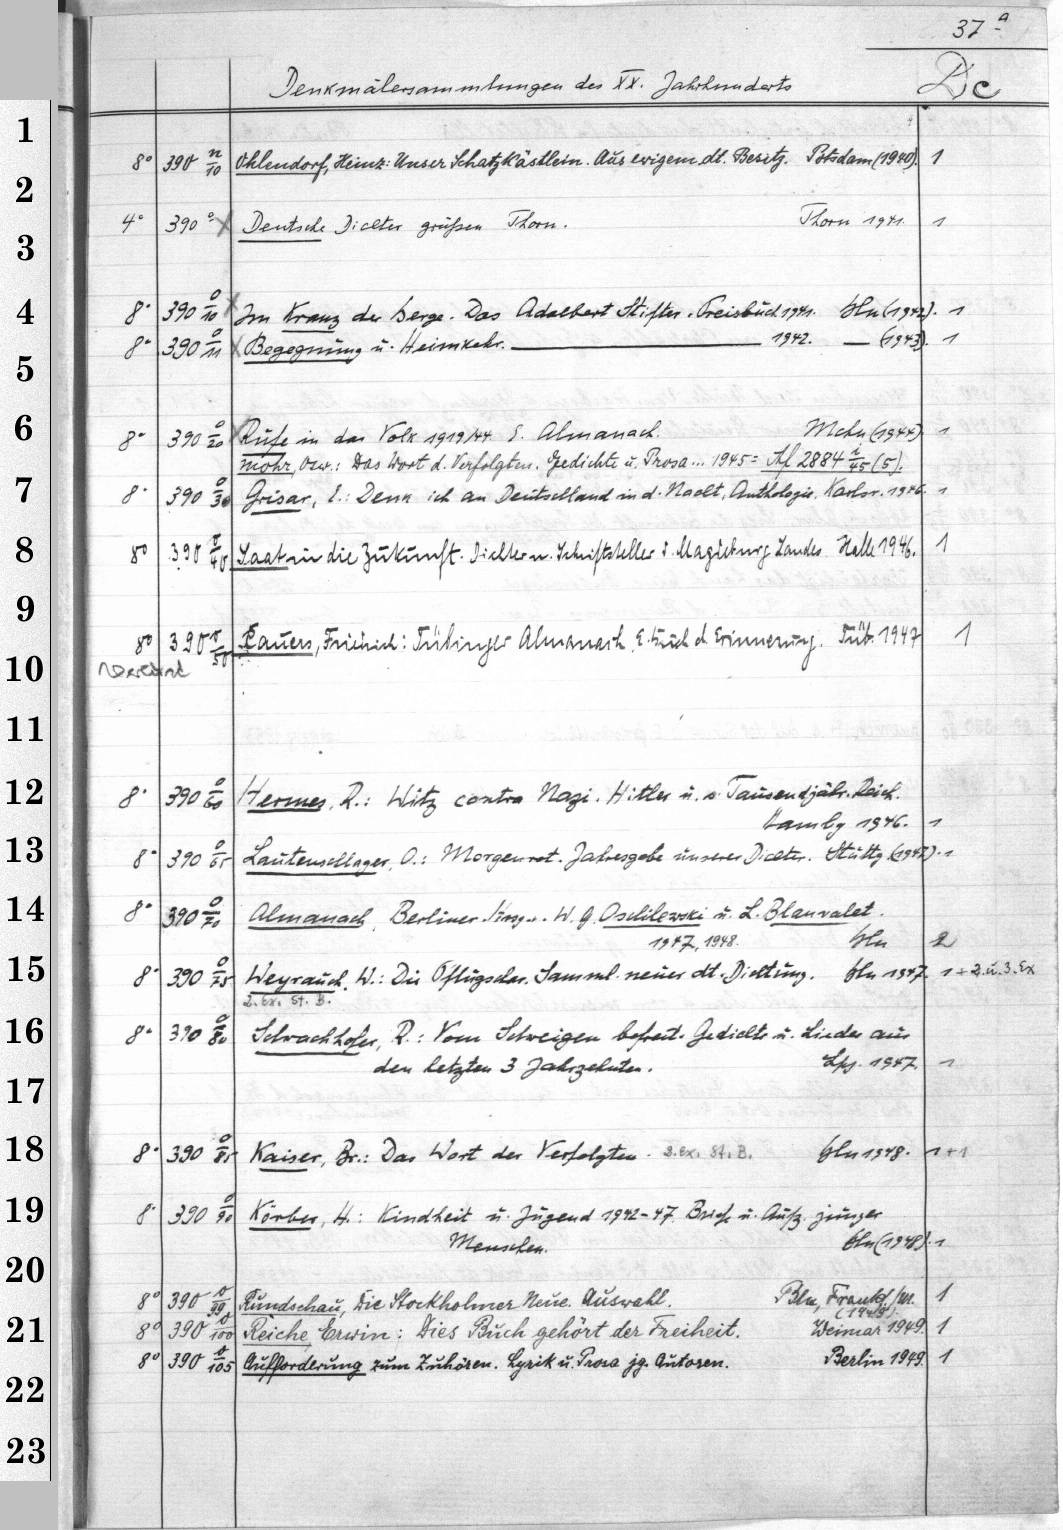 37 a
Denkmälersammlungen des XX. Jahrhunderts Dc
1
8° 390 n/10 Ohlendorf, Heinz: Unser Schatzkästlein. Aus ewigem dt. Besitz. Potsdam (1940). 1
2
4° 390 o X Deutsche Dichter grüßen Thorn. Thorn 1941. 1
3
4 8° 390 o/10 X Im Kranz der Berge. Das Adalbert Stifter-Preisbuch 1941. Bln (1942). 1
8° 390 o/11 X Begegnung u. Heimkehr. ——— 1942. — (1943). 1
5
6 8° 390 o/20 X Rufe in das Volk 1919/44 E. Almanach. Mchn (1944) 1
Mohr, Osw.: Das Wort d. Verfolgten. Gedichte u. Prosa... 1945 = Af 2884 i/45 (5).
7 8° 390 o/30 Grisar, E.: Denk ich an Deutschland in d. Nacht, Anthologie. Karlsr. 1946. 1
8 8° 390 o/40 Saat in die Zukunft. Dichter u. Schriftsteller d. Magdeburg Landes Halle 1946. 1
9
8° 390 o/50 Bauers, Friedrich: Tübinger Almanach E. Buch d. Erinnerung. Tüb. 1947 1
10
11
12 8° 390 o/60 Hermes, R.: Witz contra Nazi. Hitler u. s. Tausendjähr. Reich.
Hambg 1946. 1
13 8° 390 o/65 Lautenschlager, O.: Morgenrot. Jahresgabe unserer Dichter. Stuttg. (1947). 1
14 8° 390 o/70 Almanach, Berliner. Hrsg. v. W. G. Oschilewski u. L. Blanvalet.
1947, 1948. Bln 2
15 8° 390 o/75 Weyrauch, W.: Die Pflugschar. Samml. neuer dt. Dichtung. Bln 1947. 1 + 2. u. 3. Ex
2. Ex. St. B.
16 8° 390 o/80 Schwachhofer, R.: Vom Schweigen befreit. Gedichte u. Lieder aus
den letzten 3 Jahrzehnten. Lpz. 1947. 1
17
18 8° 390 o/85 Kaiser, Br.: Das Wort der Verfolgten. 2. Ex. St. B. Bln 1948. 1 + 1
19 8° 390 o/90 Körber, H.: Kindheit u. Jugend 1942-47. Briefe u. Aufz. junger
Menschen. Bln (1948). 1
20
8° 390 o/99 Rundschau, Die Stockholmer Neue. Auswahl. Bln, Frankf./M. 1
(1949).
21 8° 390 o/100 Reiche Erwin: Dies Buch gehört der Freiheit. Weimar 1949. 1
8° 390 o/105 Aufforderung zum Zuhören. Lyrik u. Prosa jg. Autoren. Berlin 1949. 1
22
23